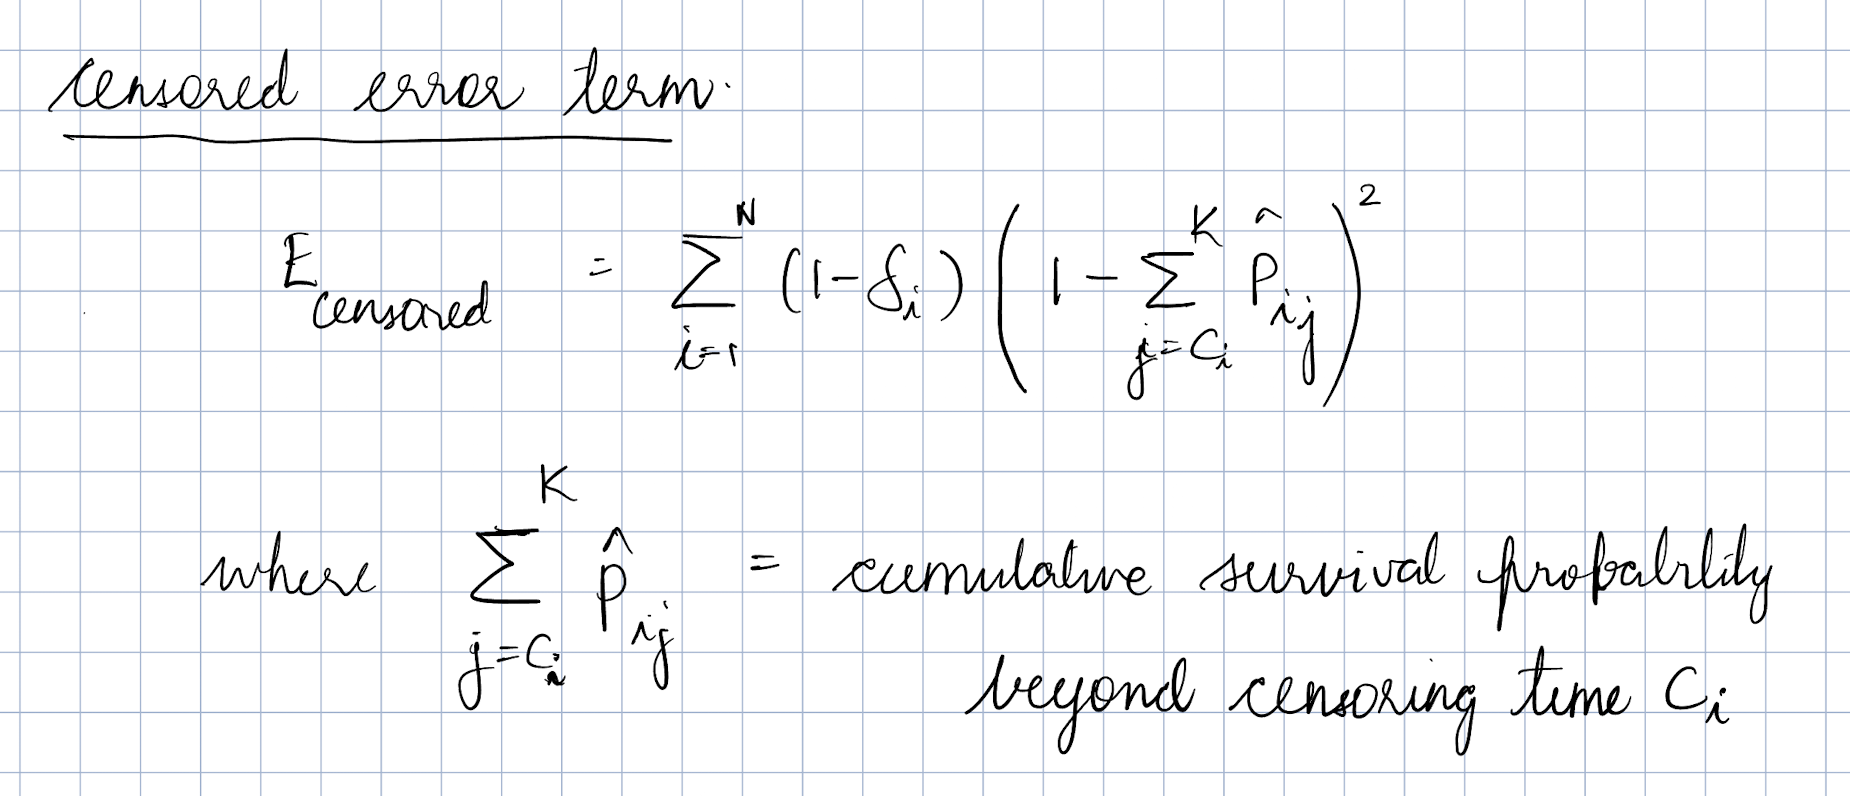 censored error term.
E_censored = \sum_{i=1}^{N} (1-δ_i) ( 1 - \sum_{j=C_i}^{K} \hat{P}_{ij} )^2
where \sum_{j=C_i}^{K} \hat{p}_{ij} = cumulative survival probability
beyond censoring time C_i